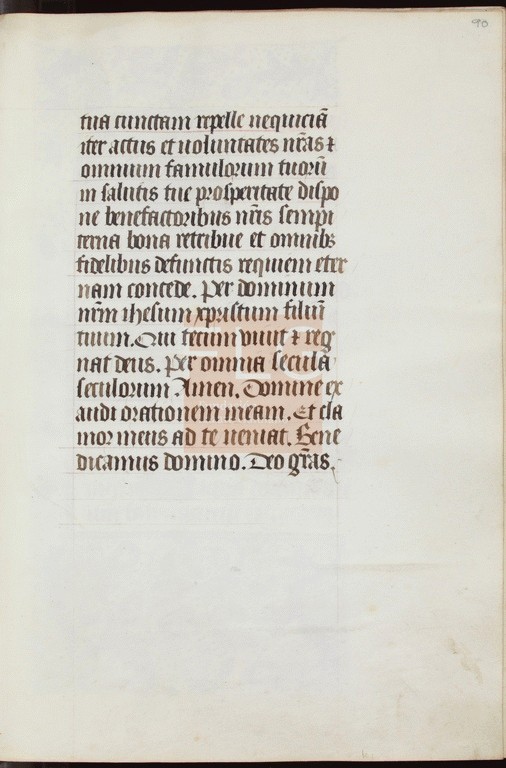 90
tua cunctam repelle nequiciā
iter actus et uoluntates nr̄as ⁊
omnium famulorum tuorū
in salutis tue prosperitate dispo
ne benefactoribus nr̄is sempi
terna bona retribue et omnibꝫ
fidelibus defunctis requiem eter
nam concede. Per dominum
nr̄m ihesum xpristum filiū
tuum. Qui tecum viuit ⁊ reg
nat deus. Per omnia secula
seculorum Amen. Domine ex
audi orationem meam. Et cla
mor meus ad te ueniat. Bene
dicamus domino. Deo gr̄as.